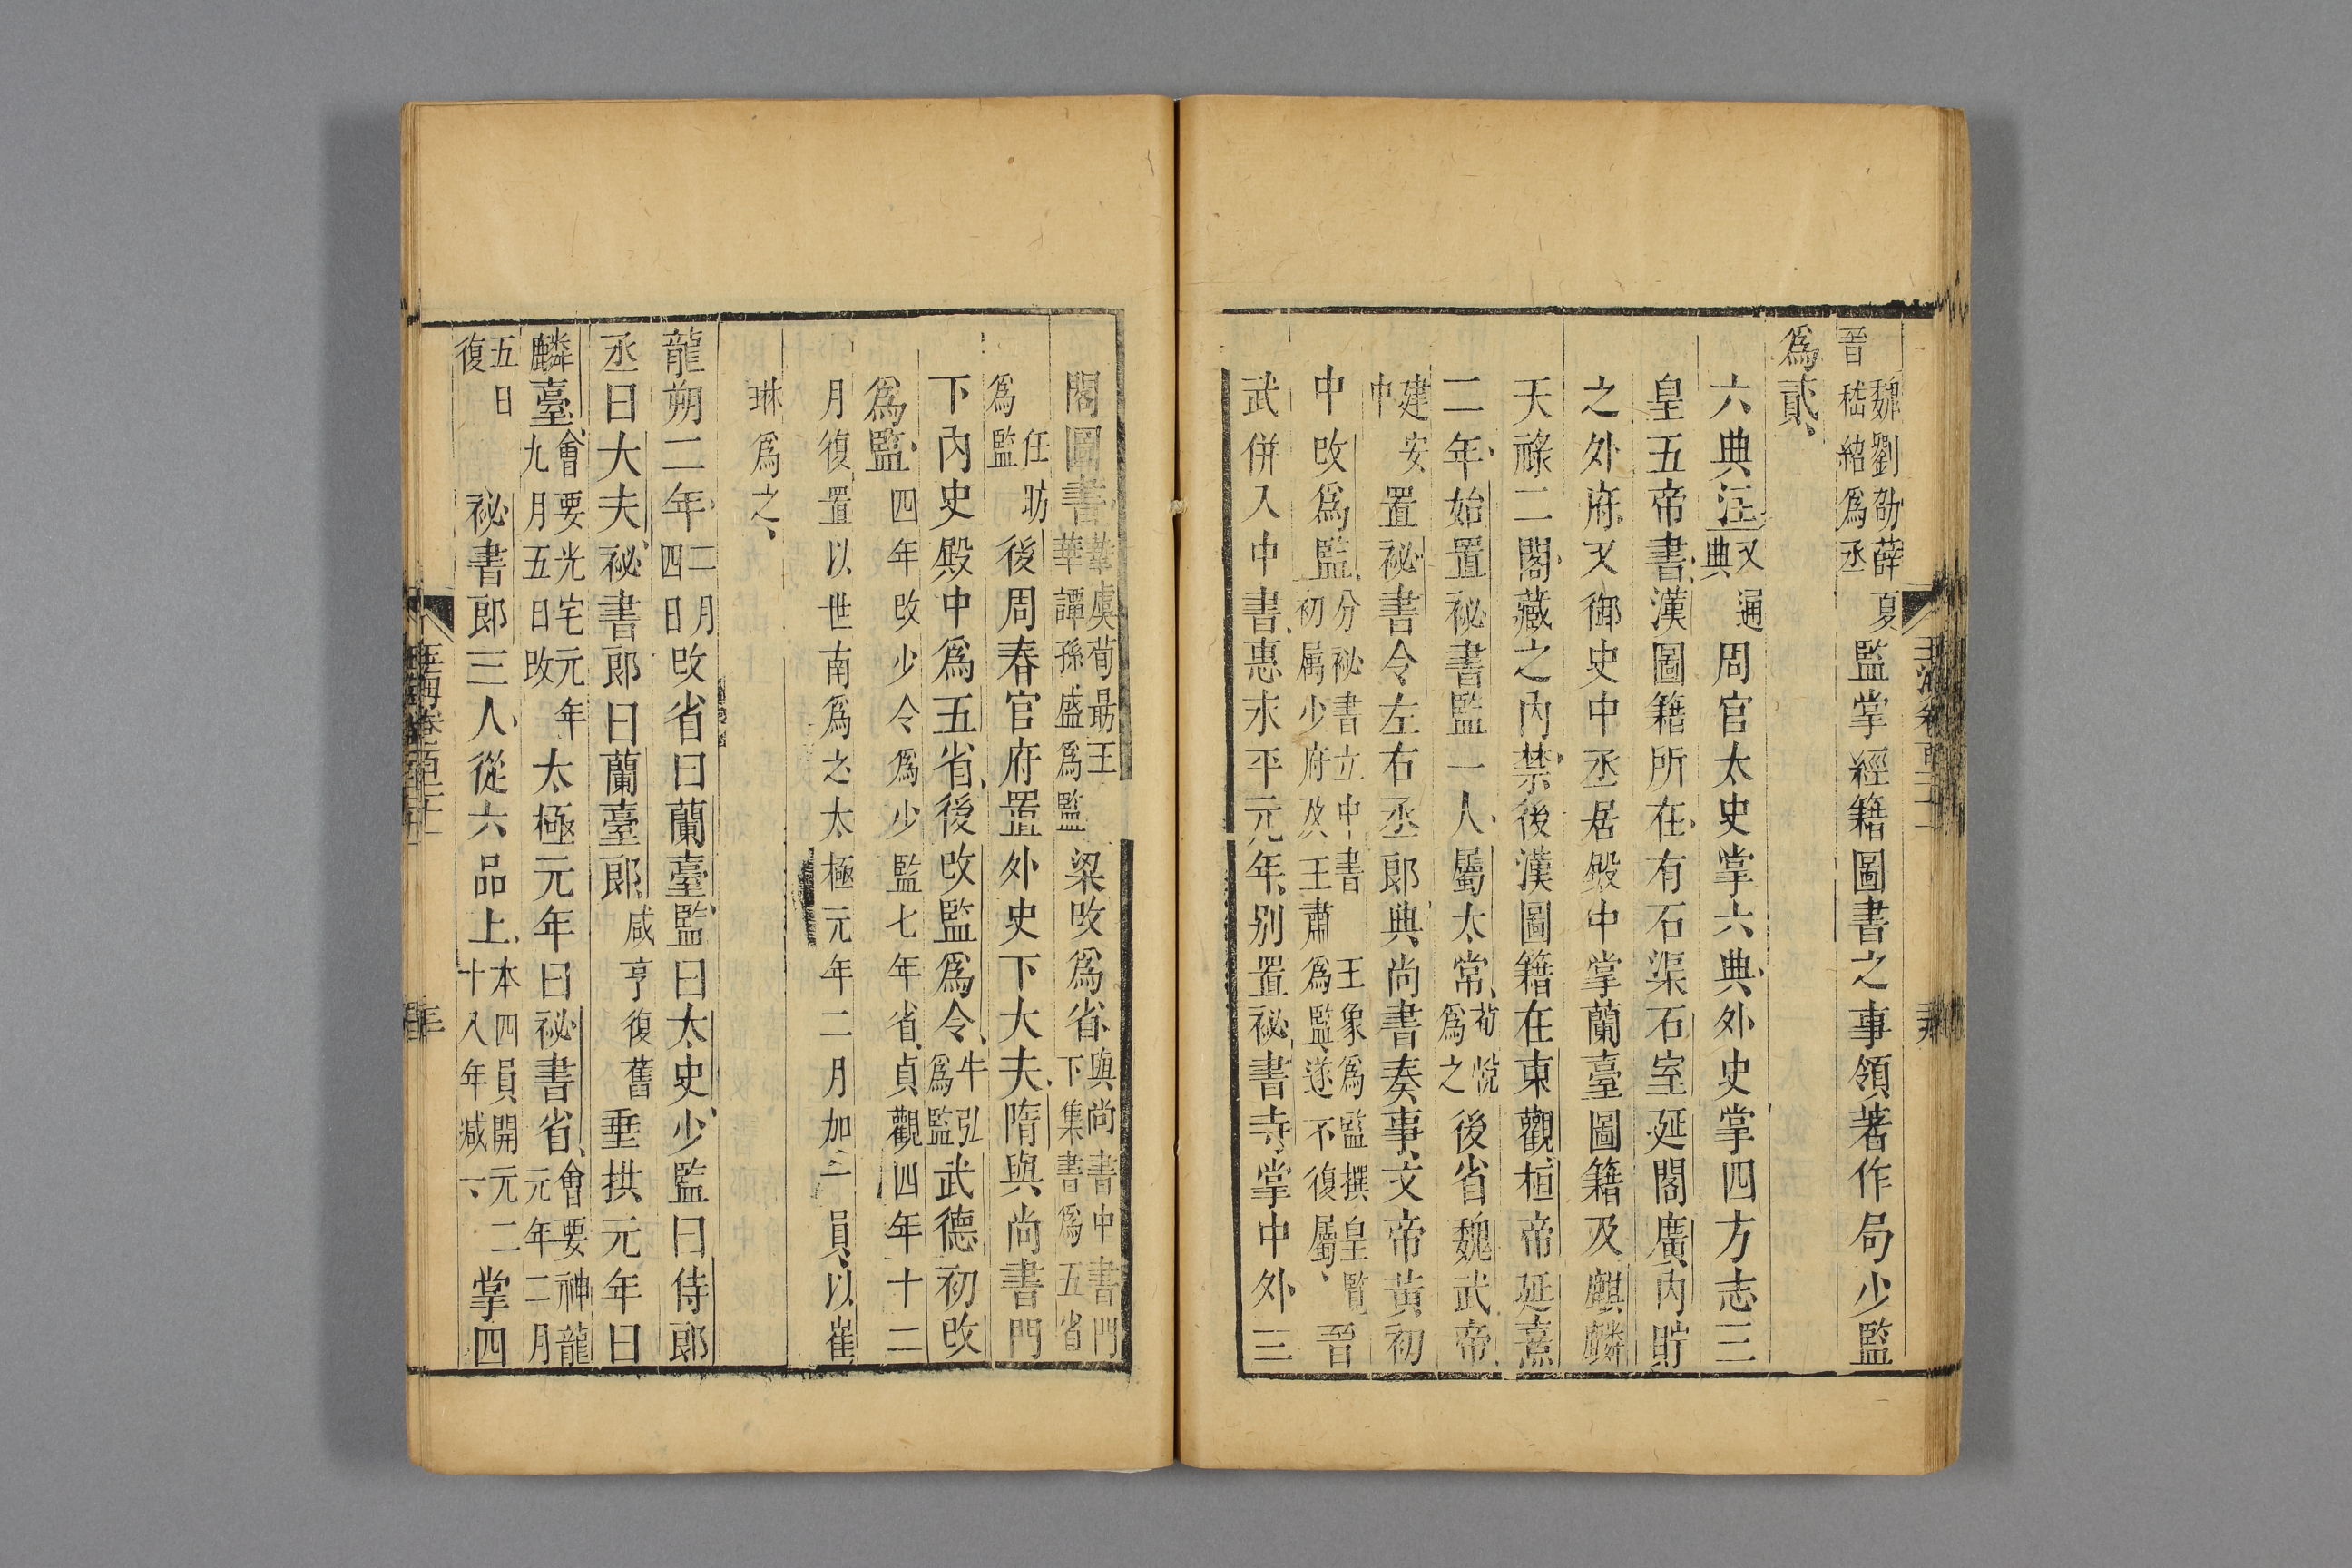 魏劉劭薛夏
晉嵇紹爲丞
監掌經籍圖書之事領著作局少監
爲貳
六典注
又通
典
周官太史掌六典外史掌四方志三
皇五帝書漢圖籍所在有石渠石室延閣廣内貯
之外府又御史中丞居殿中掌蘭臺圖籍及麒麟
天祿二閣藏之内禁後漢圖籍在東觀桓帝延熹
二年始置祕書監一人屬太常
荀悅
爲之
後省魏武帝
建安
中
置祕書令左右丞郎典尚書奏事文帝黃初
中改爲監
分祕書立中書王象爲監撰皇覽
初属少府及王肅爲監遂不復屬
晉
武併入中書惠永平元年别置祕書寺掌中外三
閣圖書
華虞荀勗王
華譚孫盛爲監
梁改爲省
與尚書中書門
下集書爲五省
任昉
爲監
後周春官府置外史下大夫隋與尚書門
下内史殿中爲五省後改監爲令
牛弘
爲監
武德初改
爲監
四年改少令爲少監七年省貞觀四年十二
月復置以世南爲之太極元年二月加一員以崔
琳爲之
龍朔二年
二月
四日
改省曰蘭臺監曰太史少監曰侍郎
丞曰大夫祕書郎曰蘭臺郎
咸亨復舊
垂拱元年曰
麟臺
會要光宅元年
九月五日改
太極元年曰祕書省
會要神龍
元年二月
五日
復
祕書郎三人從六品上
本四員開元二
十八年减一
掌四